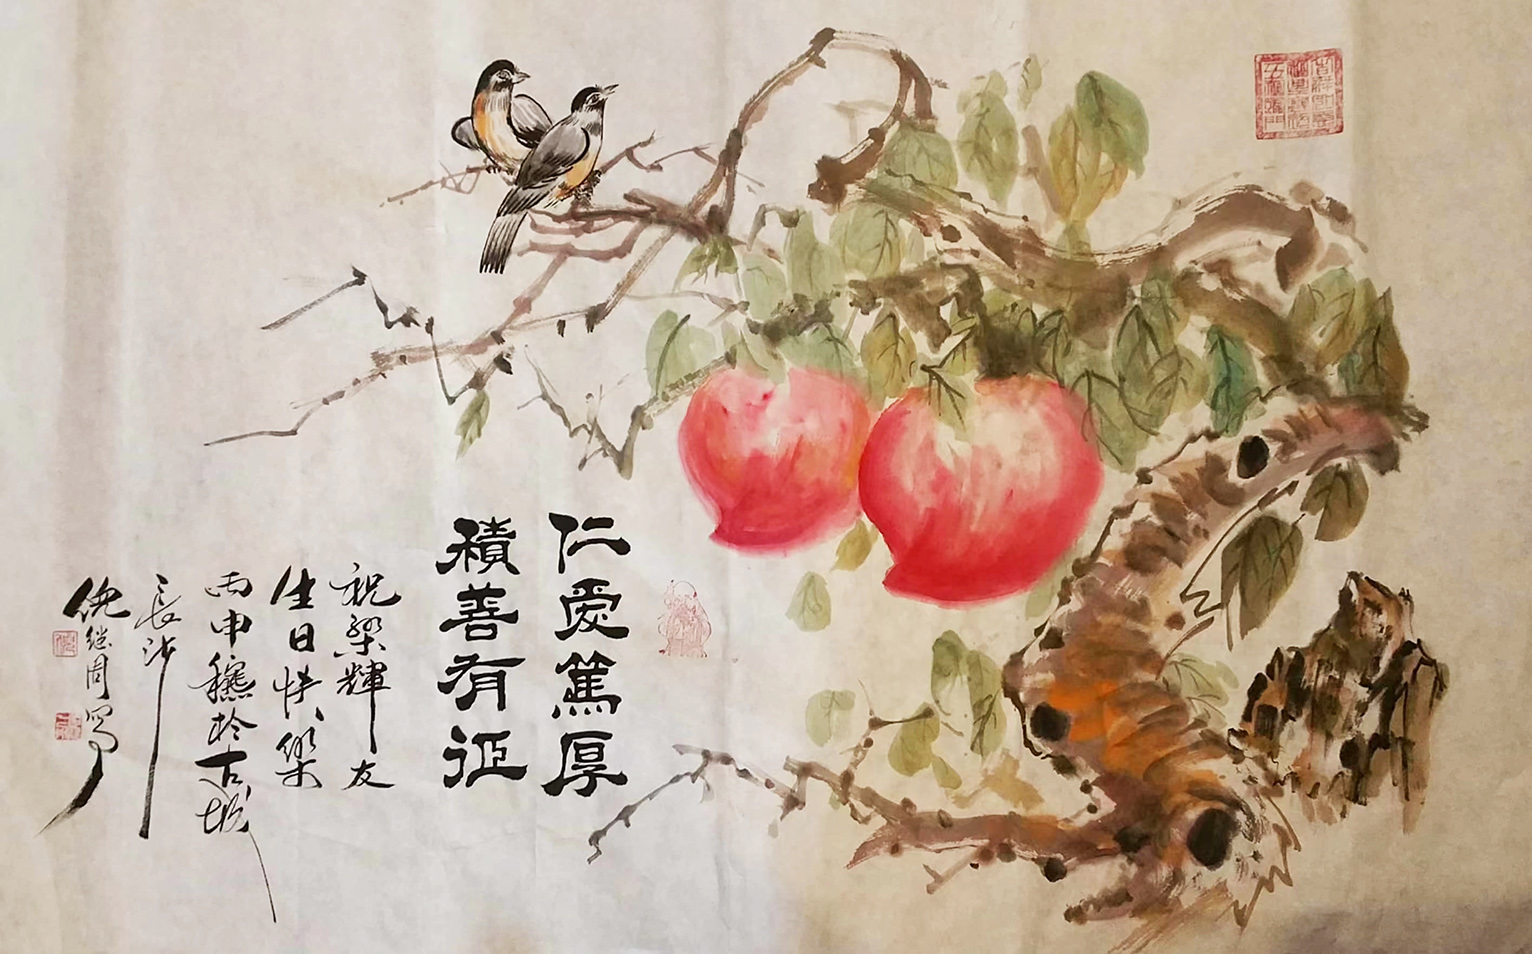 仁爱篤厚
積善有征
祝輝友
生日快樂
丙申穐於古城
長沙
倪继周写